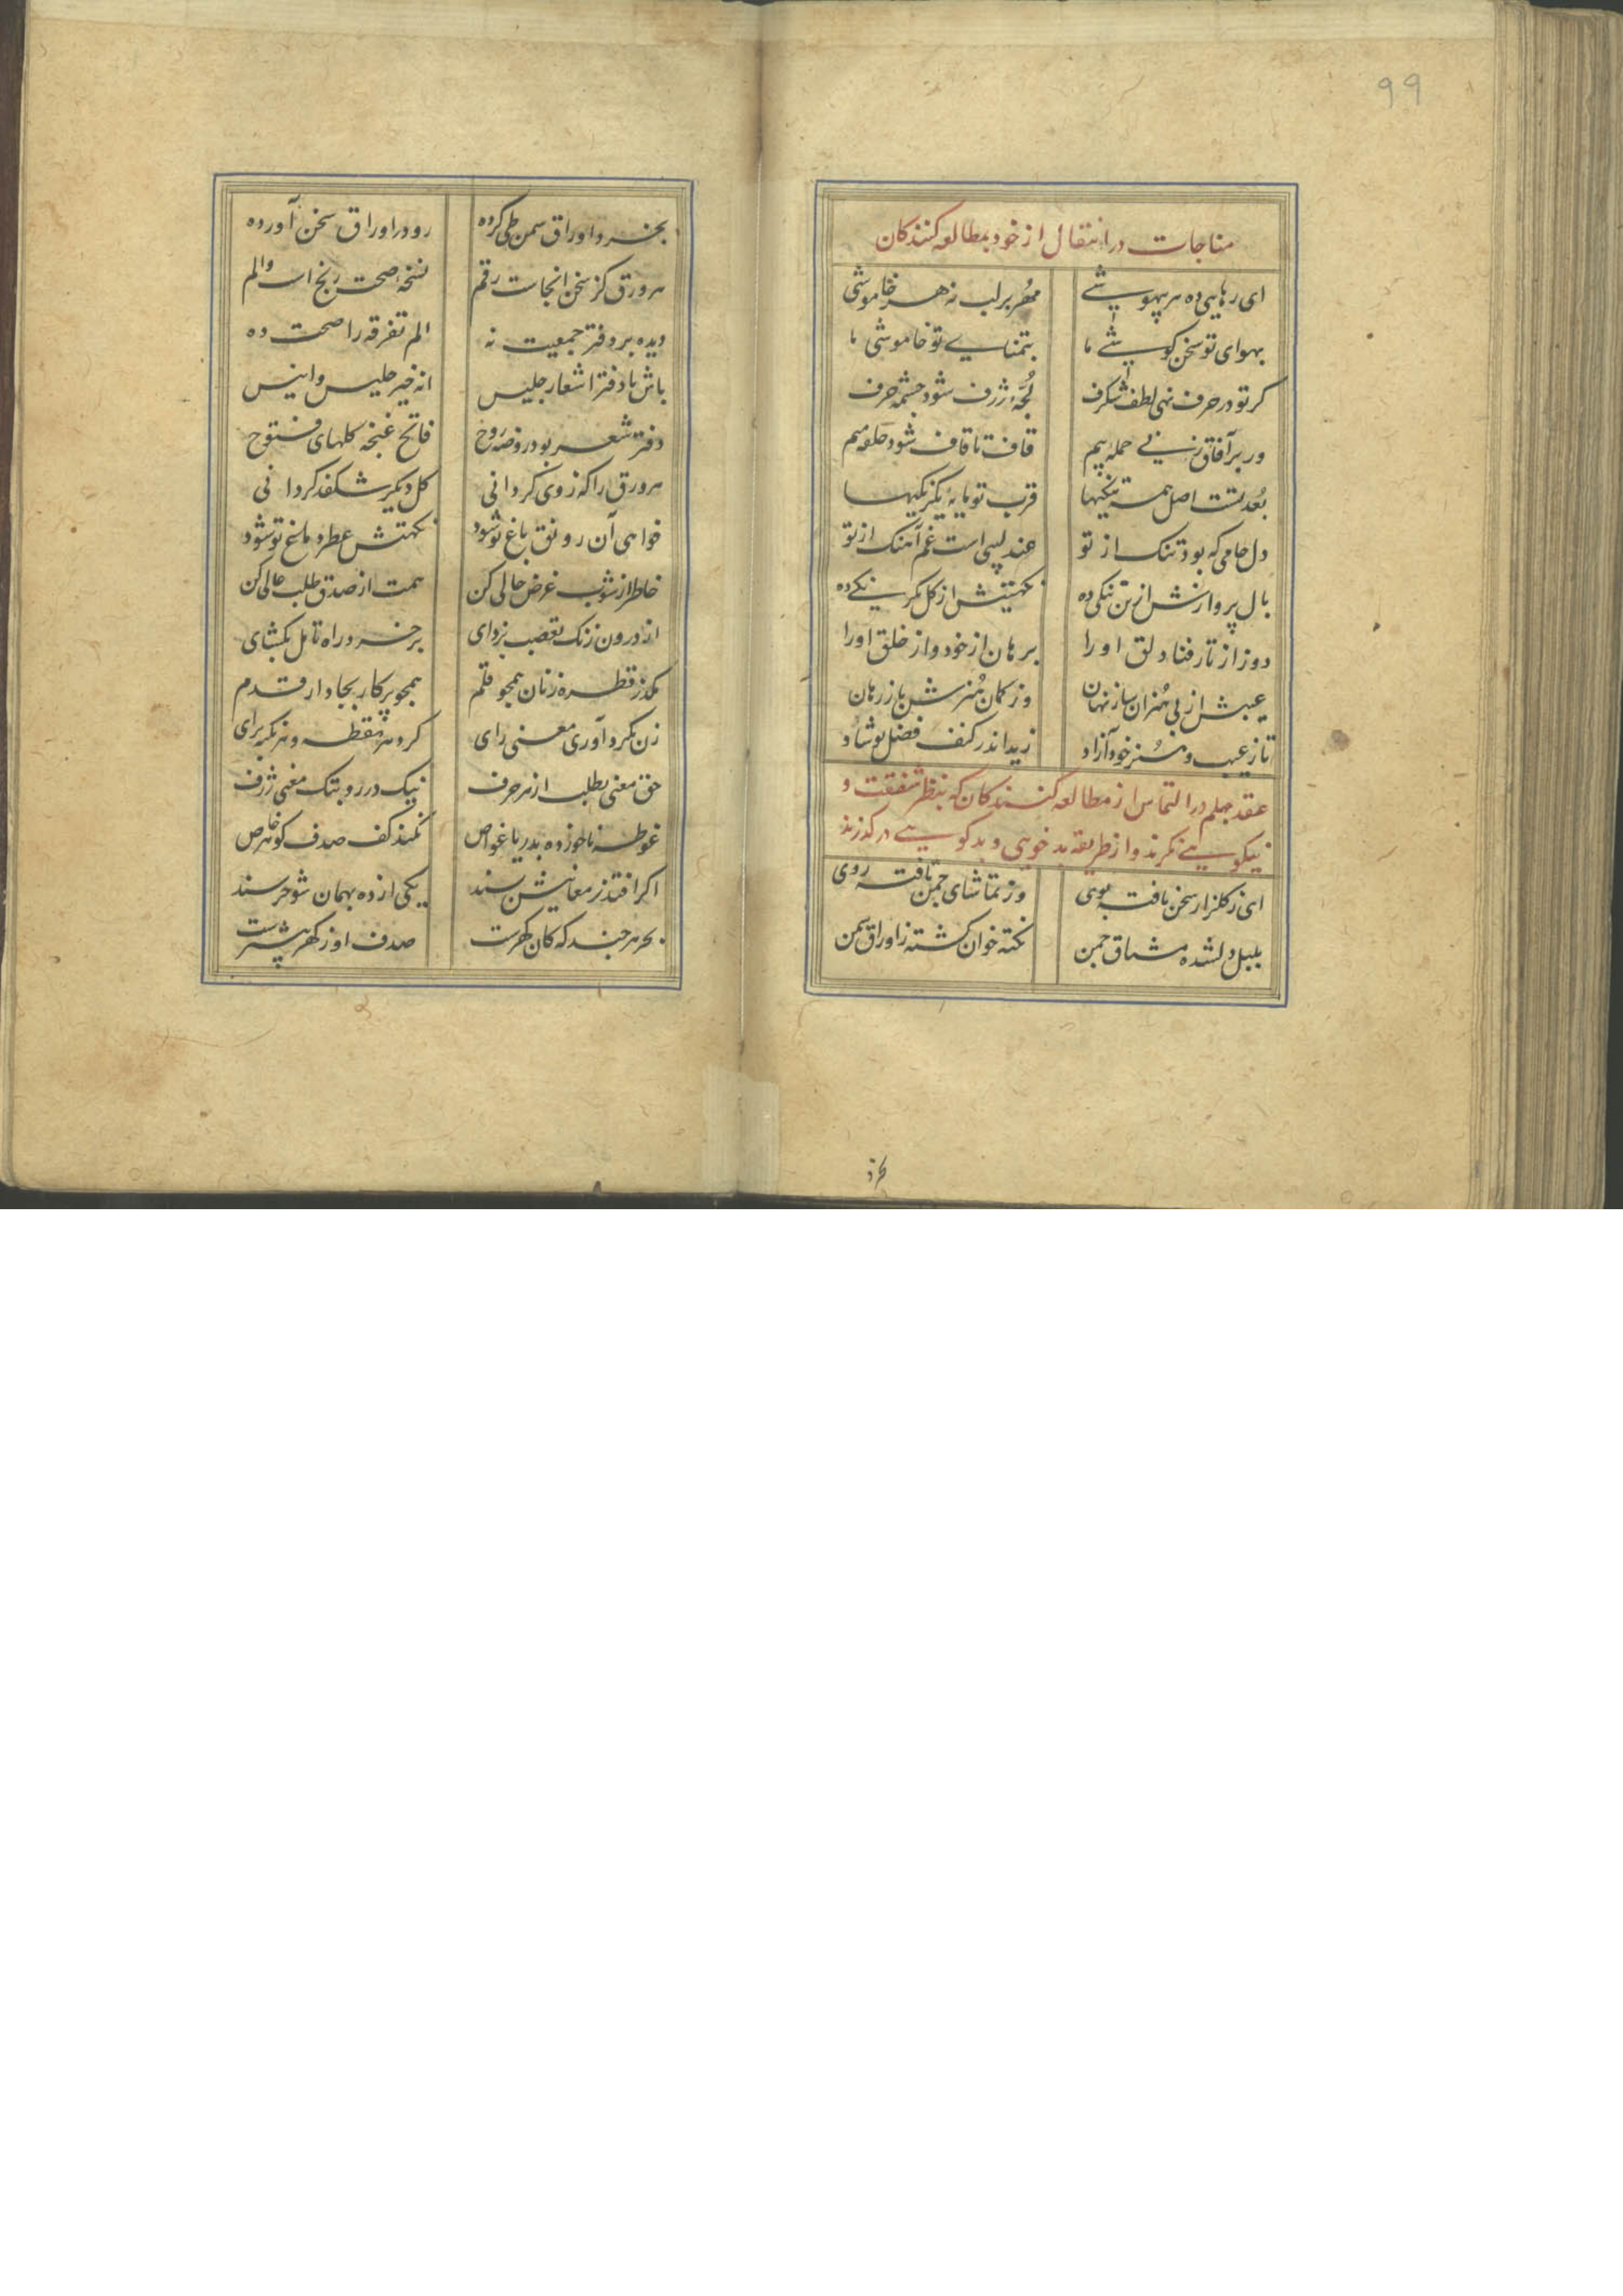 99
مناجات در انتقال از خود بمطالعه کنندکان
ای رهایی ده هر بیهوشے مهُر بر لب نه هر خاموشی
بهوای تو سخن کوشے ما بتمنایے تو خاموشی ما
کر تو در حرف نهی لطف شکرف لُجّهٔ ژرف شود چشمه حرف
ور بر آفاق زنے حمله بیم قاف تا قاف شود حلقه میم
بُعد تست اصل همه تنکیها قرب تو مایهٔ یکرنکیها
دل جامی که بود تنک از تو عندلیبی است غم آهنک از تو
بال پروازش ازین تنکی ده نکهتیش از کل یکرنکے ده
دوز از تار فنا دلق او را برهان از خود و از خلق او را
عیبش از بی هُنران ساز نهان وز کمان هُنرش باز رهان
تا ز عیب و هُنر خود آزاد زید اندر کنف فضل تو شاد
عقد چهلم در التماس از مطالعه کنندکان که بنظر شفقت و
نیکویے نکرند و از طریقه بدخویی و بدکویے در کذرند
ای ز کلزار سخن یافته بوی وز تماشای چمن تافته روی
بلبل دلشده مشتاق چمن نکته خوان کشته ز اوراق سمن
بخرد
بخرد اوراق سمن طی کرده رو در اوراق سخن آورده
هر ورق کز سخن انجاست رقم نسخهٔ صحت رنج است و الم
دیده بر دفتر جمعیت نه الم تفرقه را صحت ده
باش با دفتر اشعار جلیس انه خیر جلیس و انیس
دفتر شعر بود روضه روح فاتح غنچه کلهای فتوح
هر ورق را که ز وی کردانی کل دیکر شکفد کردانی
خواهی آن رونق باغ تو شود نکهتش عطر دماغ تو شود
خاطر از شوب غرض خالی کن همت از صدق طلب عالی کن
از درون زنک تعصب بزدای بر خرد راه تامل بکشای
مکذر قطره زنان همچو قلم همچو پرکار بجا دار قدم
زن بکرد آوری معنی رای کرد هر نقطه و هر نکته برای
حق معنی بطلب از هر حرف نیک در رو بتک معنی ژرف
غوطه ناخورده بدریا غواص نکند کف صدف کوهر خاص
اکر افتد ز معانیش پسند یکی از ده بهمان شو خرسند
بحر هر چند که کان کهرست صدف او ز کهر بیشترست